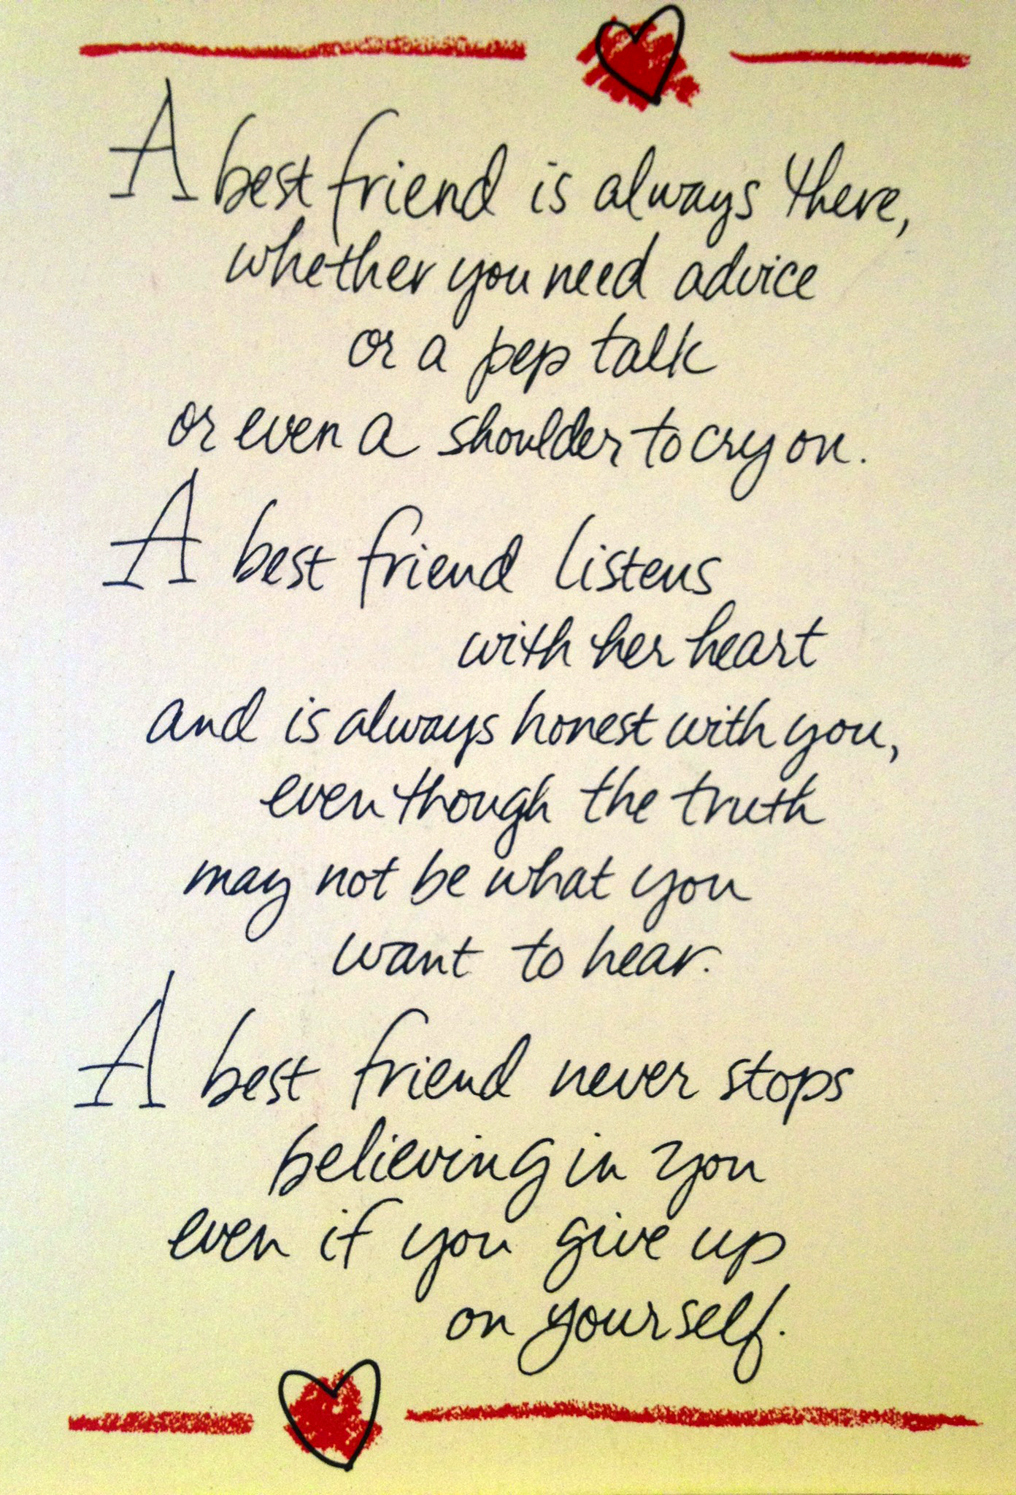 A best friend is always there,
whether you need advice
or a pep talk
or even a shoulder to cry on.
A best friend listens
with her heart
and is always honest with you,
even though the truth
may not be what you
want to hear.
A best friend never stops
believing in you
even if you give up
on yourself.